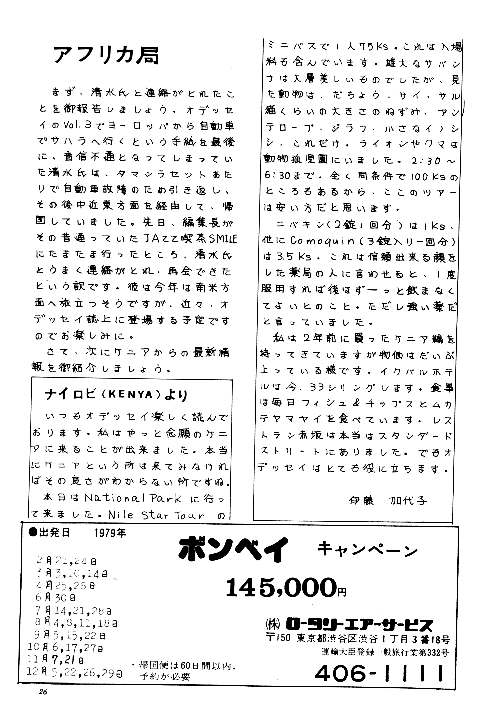 アフリカ局
まず、清水氏と連絡がとれたこ
とを御報告しましょう。オデッセ
イのVol.3でヨーロッパから自動車
でサハラへ行くという手紙を最後
に、音信不通となってしまってい
た清水氏は、タマンラセットあた
りで自動車故障のため引き返し、
その後中近東方面を経由して、帰
国していました。先日、編集長が
その昔通っていたJAZZ喫茶SMILE
にたまたま行ったところ、清水氏
とうまく連絡がとれ、再会できた
という訳です。彼は今年は南米方
面へ旅立つそうですが、近々、オ
デッセイ誌上に登場する予定です
のでお楽しみに。
さて、次にケニアからの最新情
報を御紹介しましょう。
ナイロビ(KENYA)より
いつもオデッセイ楽しく読んで
おります。私はやっと念願のケニ
アに来ることが出来ました。本当
にケニアという所は来てみなけれ
ばその良さがわからない所ですね。
本日はNational Parkに行っ
て来ました。Nile Star Tourの
ミニバスで1人75Ks。これは入場
料も含んでいます。雄大なサバン
ナは大層美しいものでしたが、見
た動物は、だちょう、サイ、サル
猫くらいの大きさのねずみ、アン
テロープ、ジラフ、小さなイノシ
シ、これだけ。ライオンやクマは
動物孤児園にいました。2:30〜
6:30まで。全く同条件で100Ksの
ところもあるから、このツアー
は安い方だと思います。
ニバキン(2錠1回分)は1Ks、
他にComoquin(3錠入リ一回分)
は3.5Ks。これは信頼出来る顔を
した薬局の人に言わせると、1度
服用すれば後はずーっと飲まなく
てよいとのこと。ただし強い薬だ
と言っていました。
私は2年前に買ったケニア編を
持ってきていますが物価はだいぶ
上っている様です。イクバルホテ
ルは今、33シリングします。食事
は毎日フィシュ&チップスとムカ
テヤマヤイを食べています。レス
トラン赤坂は本当はスタンダード
ストリートにありました。でもオ
デッセイはとても役に立ちます。
伊藤 加代子
●出発日 1979年
2月21,28日
3月3,10,14日
4月25,28日
6月30日
7月14,21,28日
8月4,8,11,18日
9月5,15,22日
10月6,17,27日
11月7,21日
12月5,22,26,29日
・帰国便は60日間以内.
予約が必要
ボンベイ キャンペーン
145,000円
㈱ロータリーエアーサービス
〒150 東京都渋谷区渋谷1丁目3番18号
運輸大臣登録一般旅行業第332号
406-1111
26